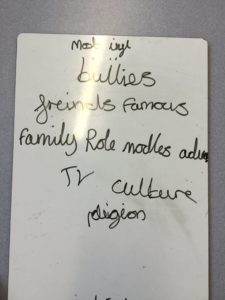 bullies
freinds famous
family Role modles
TV culture
religion